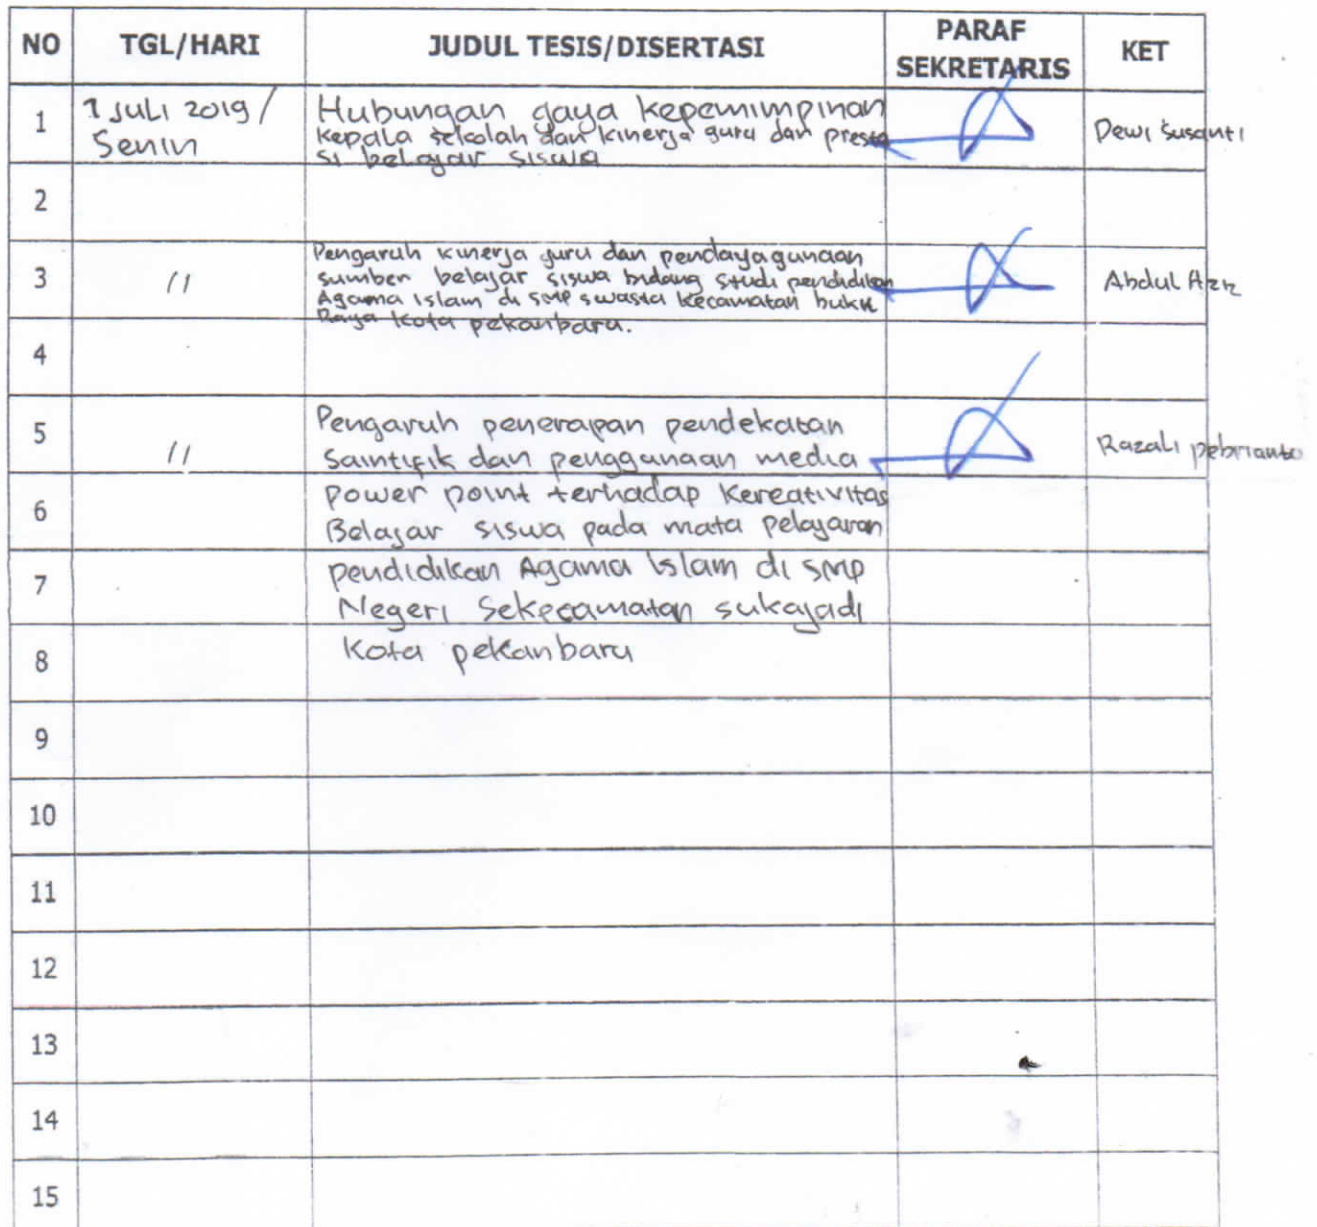 NO TGL/HARI JUDUL TESIS/DISERTASI PARAF SEKRETARIS KET
1 1 Juli 2019 / Senin Hubungan gaya kepemimpinan
kepala sekolah dan kinerja guru dan presta
si belajar siswa
Dewi Susanti
2
Pengaruh kinerja guru dan pendayagunaan
3 11 sumber belajar siswa bidang studi pendidikan
Agama islam di smp swasta kecamatan bukit
Raya kota pekanbaru.
Abdul Aziz
4
5 11 Pengaruh penerapan pendekatan
Saintifik dan penggunaan media
Razali pebrianto
6 power point terhadap Kereativitas
Belajar siswa pada mata pelajaran
7 pendidikan Agama Islam di smp
Negeri Sekecamatan sukajadi
8 Kota pekanbaru
9
10
11
12
13
14
15